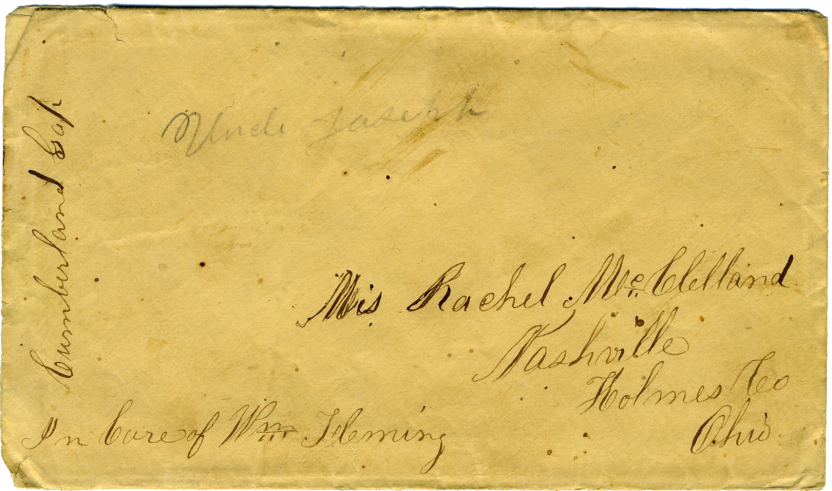 Uncle Joseph
Cumberland Gap
Mis Rachel McClelland
Nashville
Holmes Co
Ohio
In Care of Wm Fleming